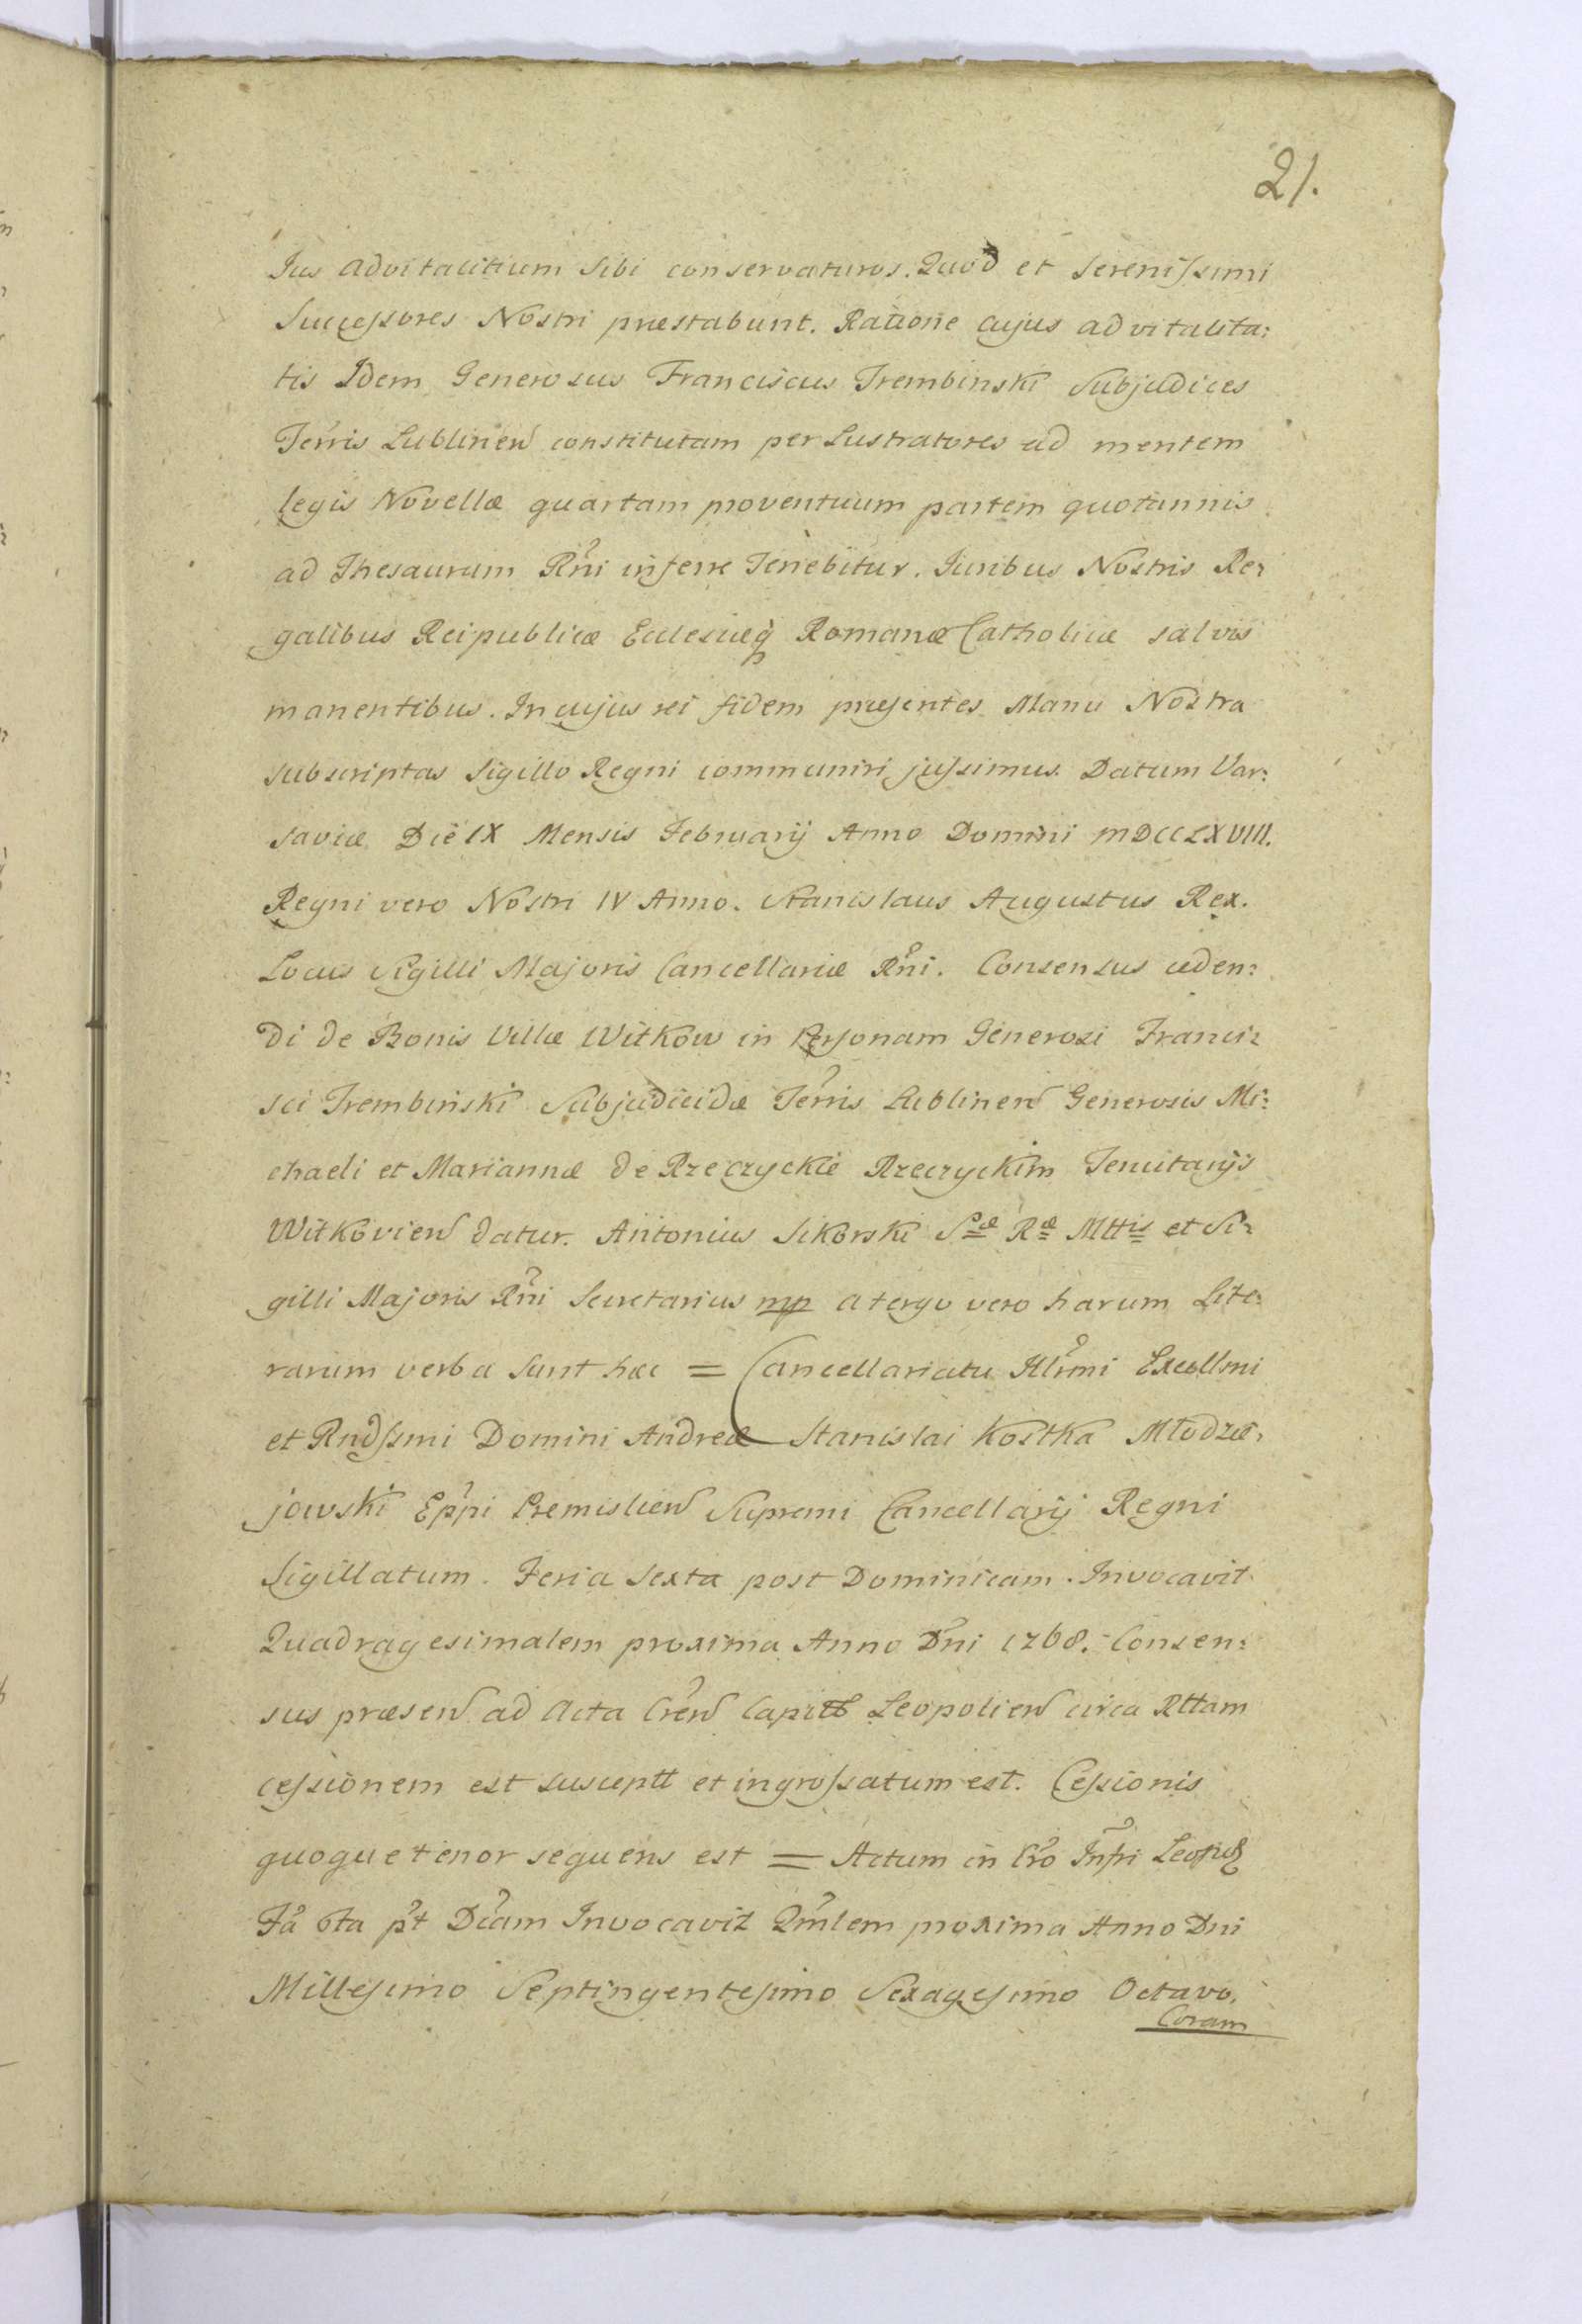 21.
Jus advitalitium Sibi conservaturos. Quod et Serenissimi
Successores Nostri præstabunt. Ratione cujus advitalita:
tis Idem Generosus Franciscus Trembinski Subjudices
Terris Lublinen constitutam per Lustratores ad mentem
legis Novellæ quartam proventuum partem quotannis
ad Thesaurum Rni inferre Tenebitur. Juribus Nostris Re:
galibus Reipublicæ Eclesiæq Romanæ Catholicæ salvis
manentibus. In cujus rei fidem præsentes Manu Nostra
subscriptas Sigillo Regni communiri jussimus. Datum Var:
saviæ Die IX Mensis February Anno Domini MDCCLXVIII.
Regni vero Nostri IV Anno. Stanislaus Augustus Rex.
Locus Sigilli Majoris Cancellariæ Rni. Consensus ceden:
di de Bonis Villæ Witkow in Personam Generosi Franci:
sci Trembinski Subjudicidæ Terris Lublinen Generosis Mi:
chaeli et Mariannæ de Rzeczyckie Rzeczyckim Tenutarijs
Witkovien datur. Antonius Sikorski Sæ Ræ Mttis et Si:
gilli Majoris Rni Secretarius mp a tergo vero harum Lite:
rarum verba sunt hæc = Cancellariatu Illrmi Excellmi
et Rndssmi Domini Andreæ Stanislai Kostka Młodzie:
jowski Eppi Premislien Supremi Cancellarij Regni
Sigillatum. Feria Sexta post Dominicam Invocavit
Quadragesimalem proxima Anno Dni 1768. Consen:
sus præsen ad Acta Cren Capittl Leopolien circa Rttam
cessionem est susceptt et ingrossatum est. Cessionis
quoque tenor sequens est = Actum in Cro Infri Leopol
Fa 6ta pt Dicam Invocavit Qmlem proxima Anno Dni
Millesimo Septingentesimo Sexagesimo Octavo.
Coram